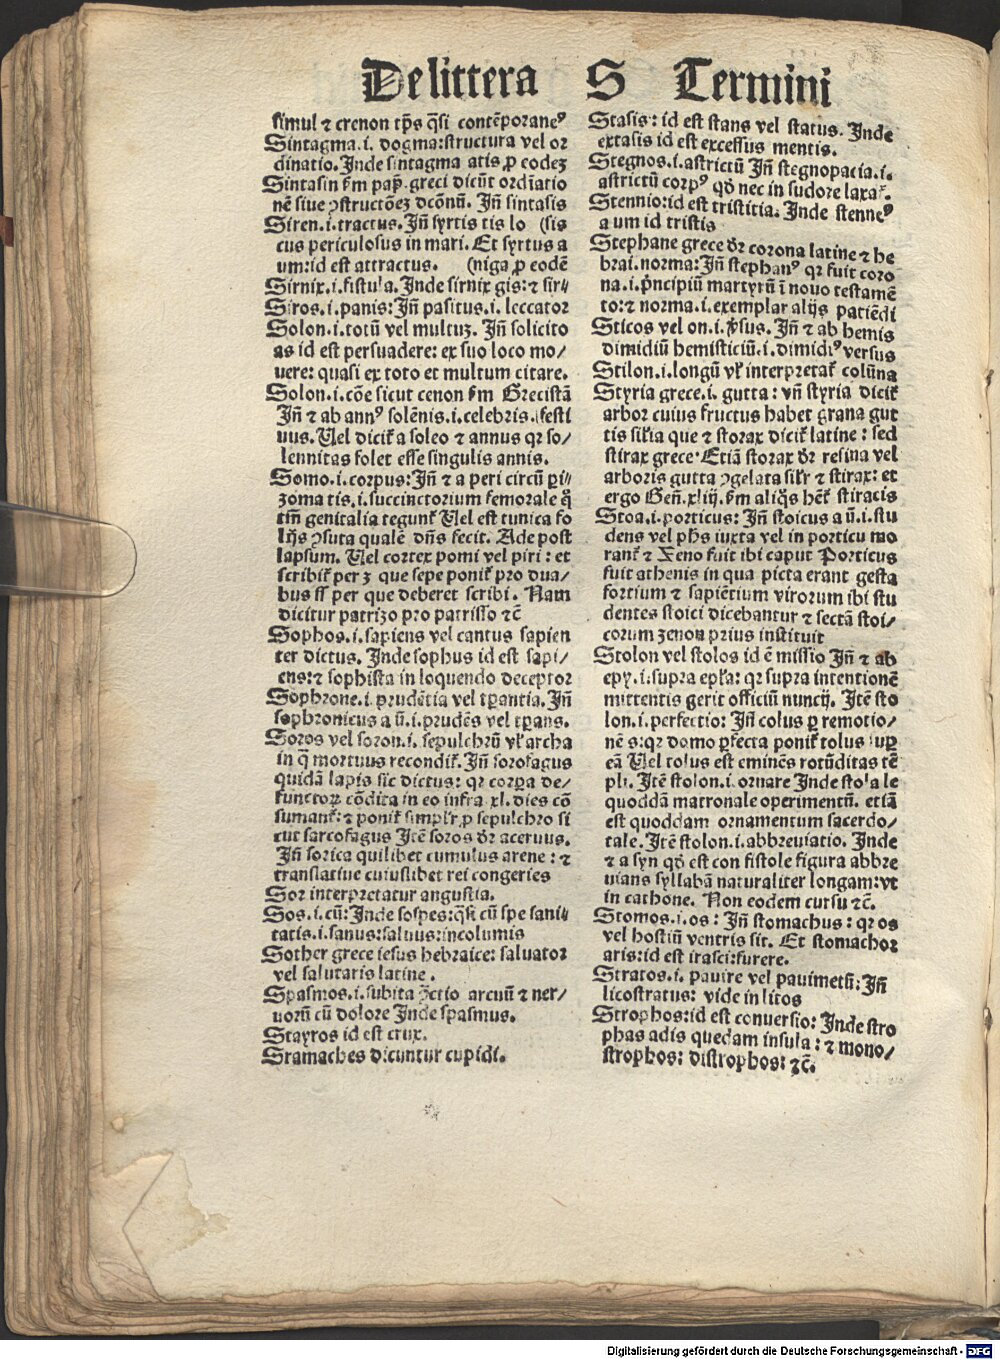 De littera S Termini
simul ⁊ crenon tp̄s q̄si contēporaneꝰ
Sintagma.i. dogma:structura vel or
dinatio. Inde sintagma atis ꝓ eodeꝫ
Sintasin ẜm pap̄. greci dicūt ordīatio
nē siue ꝯstructōeꝫ dcōnū. Iñ sintasis
Siren.i.tractus. Iñ syrtis tis lo (sis
cus periculosus in mari. Et syrtus a
um:id est attractus. (niga ꝓ eodē
Sirnix.i.fistula. Inde sirnix gis:⁊ siri⸗
Siros.i.panis: Iñ pasitus.i. leccator
Solon.i.totū vel multuꝫ. Iñ solicito
as id est persuadere: ex suo loco mo/
uere: quasi ex toto et multum citare.
Solon.i.cōe sicut cenon ẜm Grecistā
Iñ ⁊ ab annꝰ solēnis.i.celebris. festi
uus. Uel dicit̄ a soleo ⁊ annus qꝛ so/
lennitas solet esse singulis annis.
Somo.i.corpus: Iñ ⁊ a peri circū ꝑi⸗
zoma tis.i.succinctorium femorale q̊
tm̄ genitalia tegunt̄ Uel est tunica fo
lijs ꝯsuta qualē dn̄s fecit. Ade post
lapsum. Uel cortex pomi vel piri: et
scribit̄ per ꝫ que sepe ponit̄ pro dua/
bus ss per que deberet scribi. Nam
dicitur patrizo pro patrisso ⁊c̄
Sophos.i.sapiens vel cantus sapien
ter dictus. Inde sophus id est sapi/
ens:⁊ sophista in loquendo deceptor
Sophrone.i.prudētia vel tꝑantia. Iñ
sophronicus a ū.i.prudēs vel tꝑans.
Soros vel soron.i. sepulchrū vl̄ archa
in q̄ mortuus recondit̄. Iñ sorofagus
quidā lapis sic dictus: qꝛ corꝑa de/
functoꝝ cōdita in eo infra xl. dies cō
sumant̄:⁊ ponit̄ simpl̄r ꝓ sepulchro si
cut sarcofagus Itē soros dr̄ aceruus.
Iñ sorica quilibet cumulus arene: ⁊
translatiue cuiuslibet rei congeries
Sor interpretatur angustia.
Sos.i.cū: Inde sospes:q̄si cū spe sani⸗
tatis.i.sanus:saluus:incolumis
Sother grece iesus hebraice: saluator
vel salutaris latine.
Spasmos.i.subita ꝯctio arcuū ⁊ ner/
uorū cū dolore Inde spasmus.
Stayros id est crux.
Sramaches dicuntur cupidi.
Stasis: id est stans vel status. Inde
extasis id est excessus mentis.
Stegnos.i.astrictū Iñ stegnopacia.i.
astrictū corpꝰ qđ nec in sudore laxat̄.
Stennio:id est tristitia. Inde stenneꝰ
a um id tristis
Stephane grece dr̄ corona latine ⁊ he
brai.norma:Iñ stephanꝰ qꝛ fuit coro
na.i.pͥncipiū martyrū ī nouo testamē
to:⁊ norma.i.exemplar alijs patiēdi
Sticos vel on.i.ꝟsus. Iñ ⁊ ab hemis
dimidiū hemisticiū.i.dimidiꝰ versus
Stilon.i.longū vl̄ interpretat̄ colūna
Styria grece.i. gutta: vñ styria dicit̄
arbor cuius fructus habet grana gut
tis sil̄ia que ⁊ storax dicit̄ latine: sed
stirax grece. Etiā storax dr̄ resina vel
arboris gutta ꝯgelata sil̄r ⁊ stirax: et
ergo Geñ.xliij. ẜm aliq̄s hēt̄ stiracis
Stoa.i.porticus: Iñ stoicus a ū.i.stu
dens vel ph̄s iuxta vel in porticu mo
rant̄ ⁊ Xeno fuit ibi caput Porticus
fuit athenis in qua picta erant gesta
fortium ⁊ sapiētium virorum ibi stu
dentes stoici dicebantur ⁊ sectā stoi/
corum zenon prius instituit
Stolon vel stolos id ē missio Iñ ⁊ ab
epy.i.supra epl̄a: qꝛ supra intentionē
mittentis gerit officiū nuncij. Itē sto
lon.i.perfectio: Iñ colus ꝑ remotio/
nē s:qꝛ domo ꝑfecta ponit̄ tolus supꝑ
eā Uel tolus est eminēs rotūditas tē
pli. Itē stolon.i.ornare Inde stola le
quoddā matronale operimentū. etiā
est quoddam ornamentum sacerdo/
tale. Itē stolon.i.abbreuiatio. Inde
⁊ a syn qđ est con sistole figura abbre
uians syllabā naturaliter longam:vt
in cathone. Non eodem cursu ⁊c̄.
Stomos.i.os: Iñ stomachus: qꝛ os
vel hostiū ventris sit. Et stomachor
aris:id est irasci:furere.
Stratos.i. pauire vel pauimētū: Iñ
licostratus: vide in litos
Strophos:id est conuersio: Inde stro
phas adis quedam insula: ⁊ mono/
strophos: distrophos: ⁊c̄.
Digitalisierung gefördert durch die Deutsche Forschungsgemeinschaft - DFG